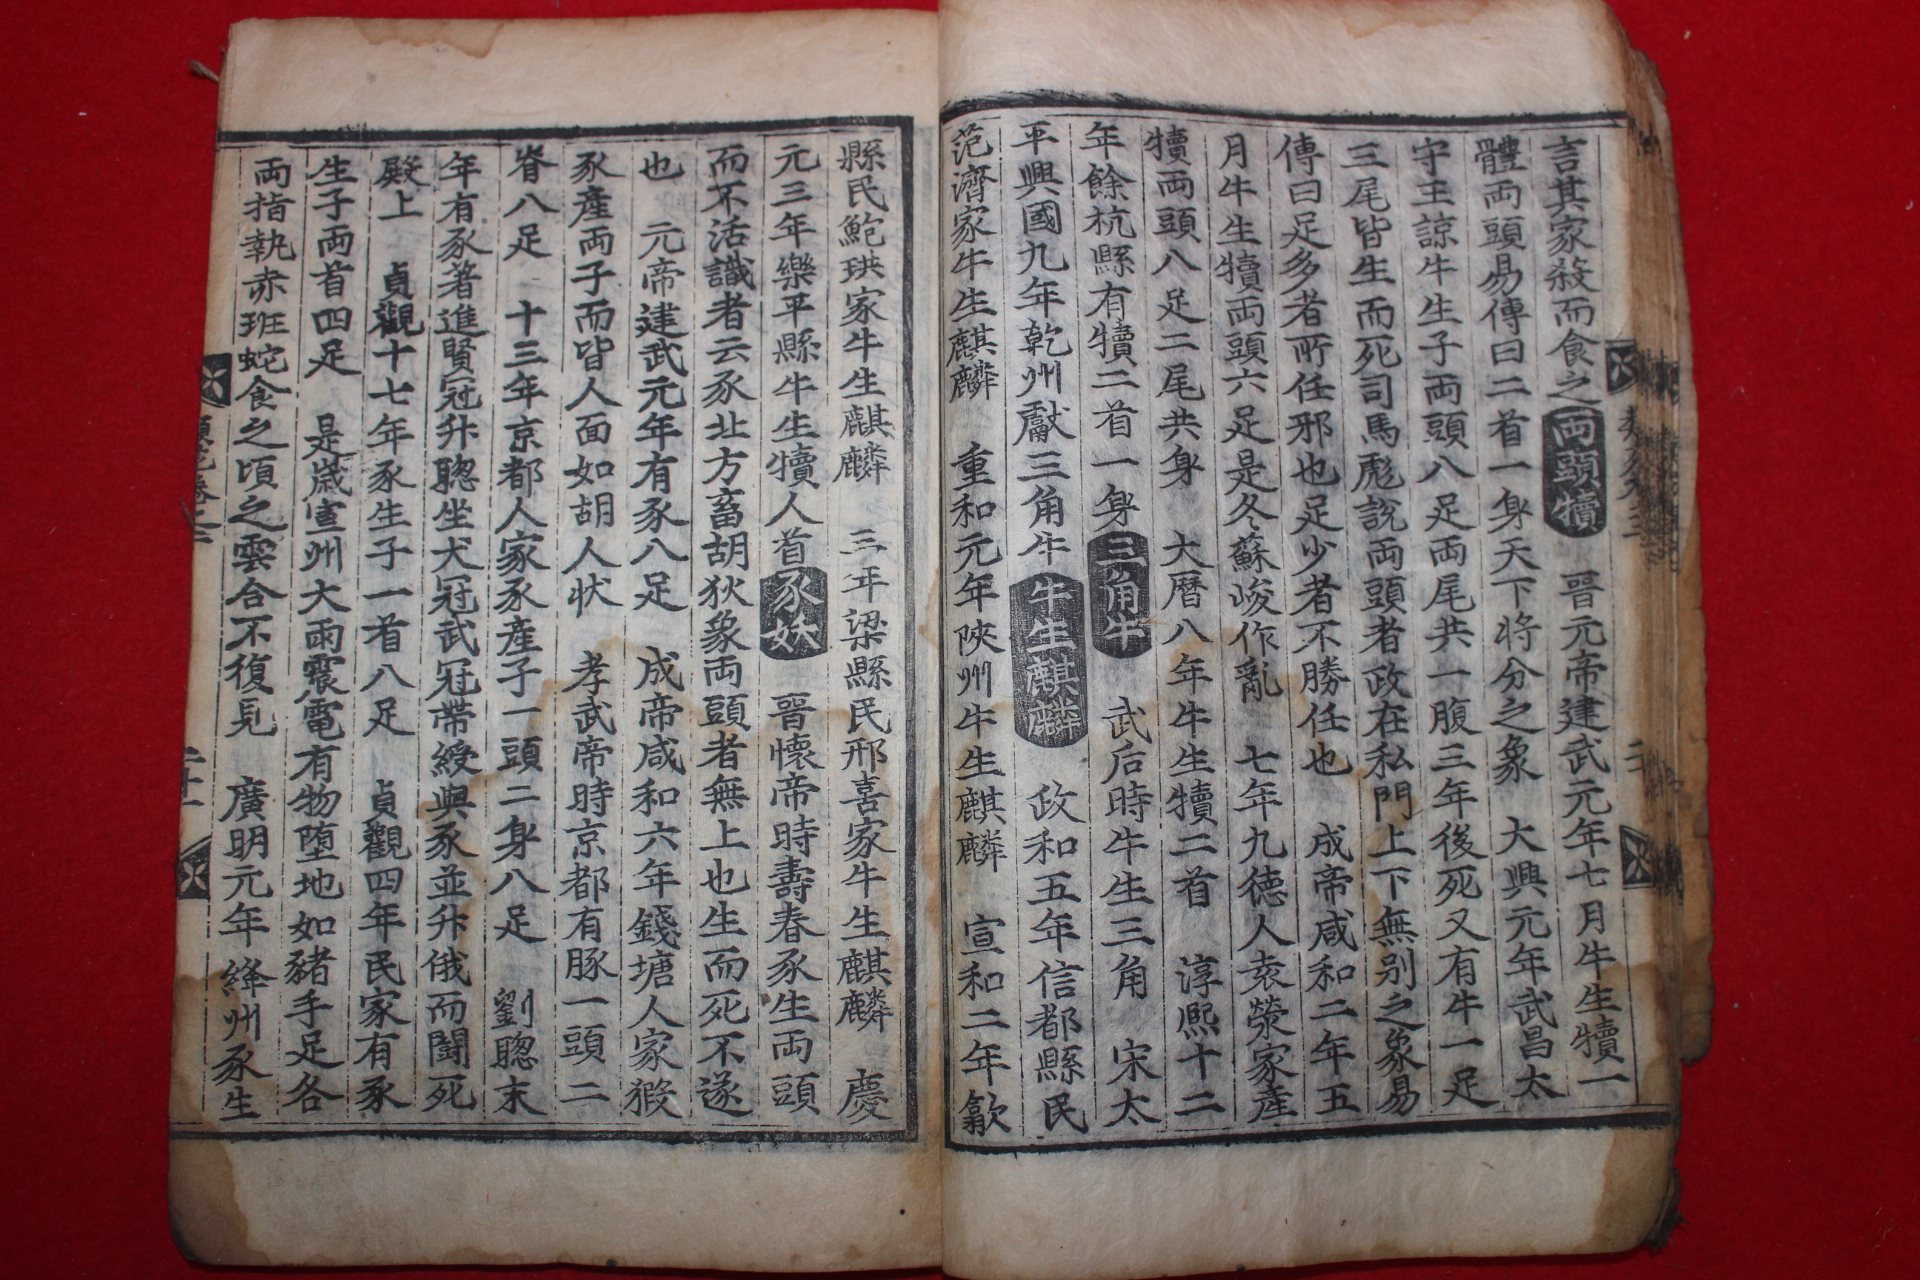 言其家殺而食之兩頭犢 晉元帝建武元年七月牛生犢一
體兩頭易傳曰二首一身天下將分之象 大興元年武昌太
守王諒牛生子兩頭八足兩尾共一腹三年後死又有牛一足
三尾皆生而死司馬彪說兩頭者政在私門上下無別之象易
傳曰足多者所任邪也足少者不勝任也 成帝咸和二年五
月牛生犢兩頭六足是冬蘇峻作亂 七年九德人袁滎家產
犢兩頭八足二尾共身 大曆八年牛生犢二首 淳熙十二
年餘杭縣有犢二首一身三角牛 武后時牛生三角 宋太
平興國九年乾州獻三角牛牛生麒麟 政和五年信都縣民
范濟家牛生麒麟 重和元年陝州牛生麒麟 宣和二年歙
縣民鮑珙家牛生麒麟 三年梁縣民邢喜家牛生麒麟 慶
元三年樂平縣牛生犢人首豕妖 晉懷帝時壽春豕生兩頭
而不活識者云豕北方畜胡狄象兩頭者無上也生而死不遂
也 元帝建武元年有豕八足 成帝咸和六年錢塘人家豭
豕產兩子而皆人面如胡人狀 孝武帝時京都有豚一頭二
脊八足 十三年京都人家豕產子一頭二身八足 劉聰末
年有豕著進賢冠升聰坐犬冠武冠帶綬與豕並升俄而鬪死
殿上 貞觀十七年豕生子一首八足 貞觀四年民家有豕
生子兩首四足 是歲宣州大雨震電有物墮地如豬手足各
兩指執赤班蛇食之頃之雲合不復見 廣明元年絳州豕生
二十一